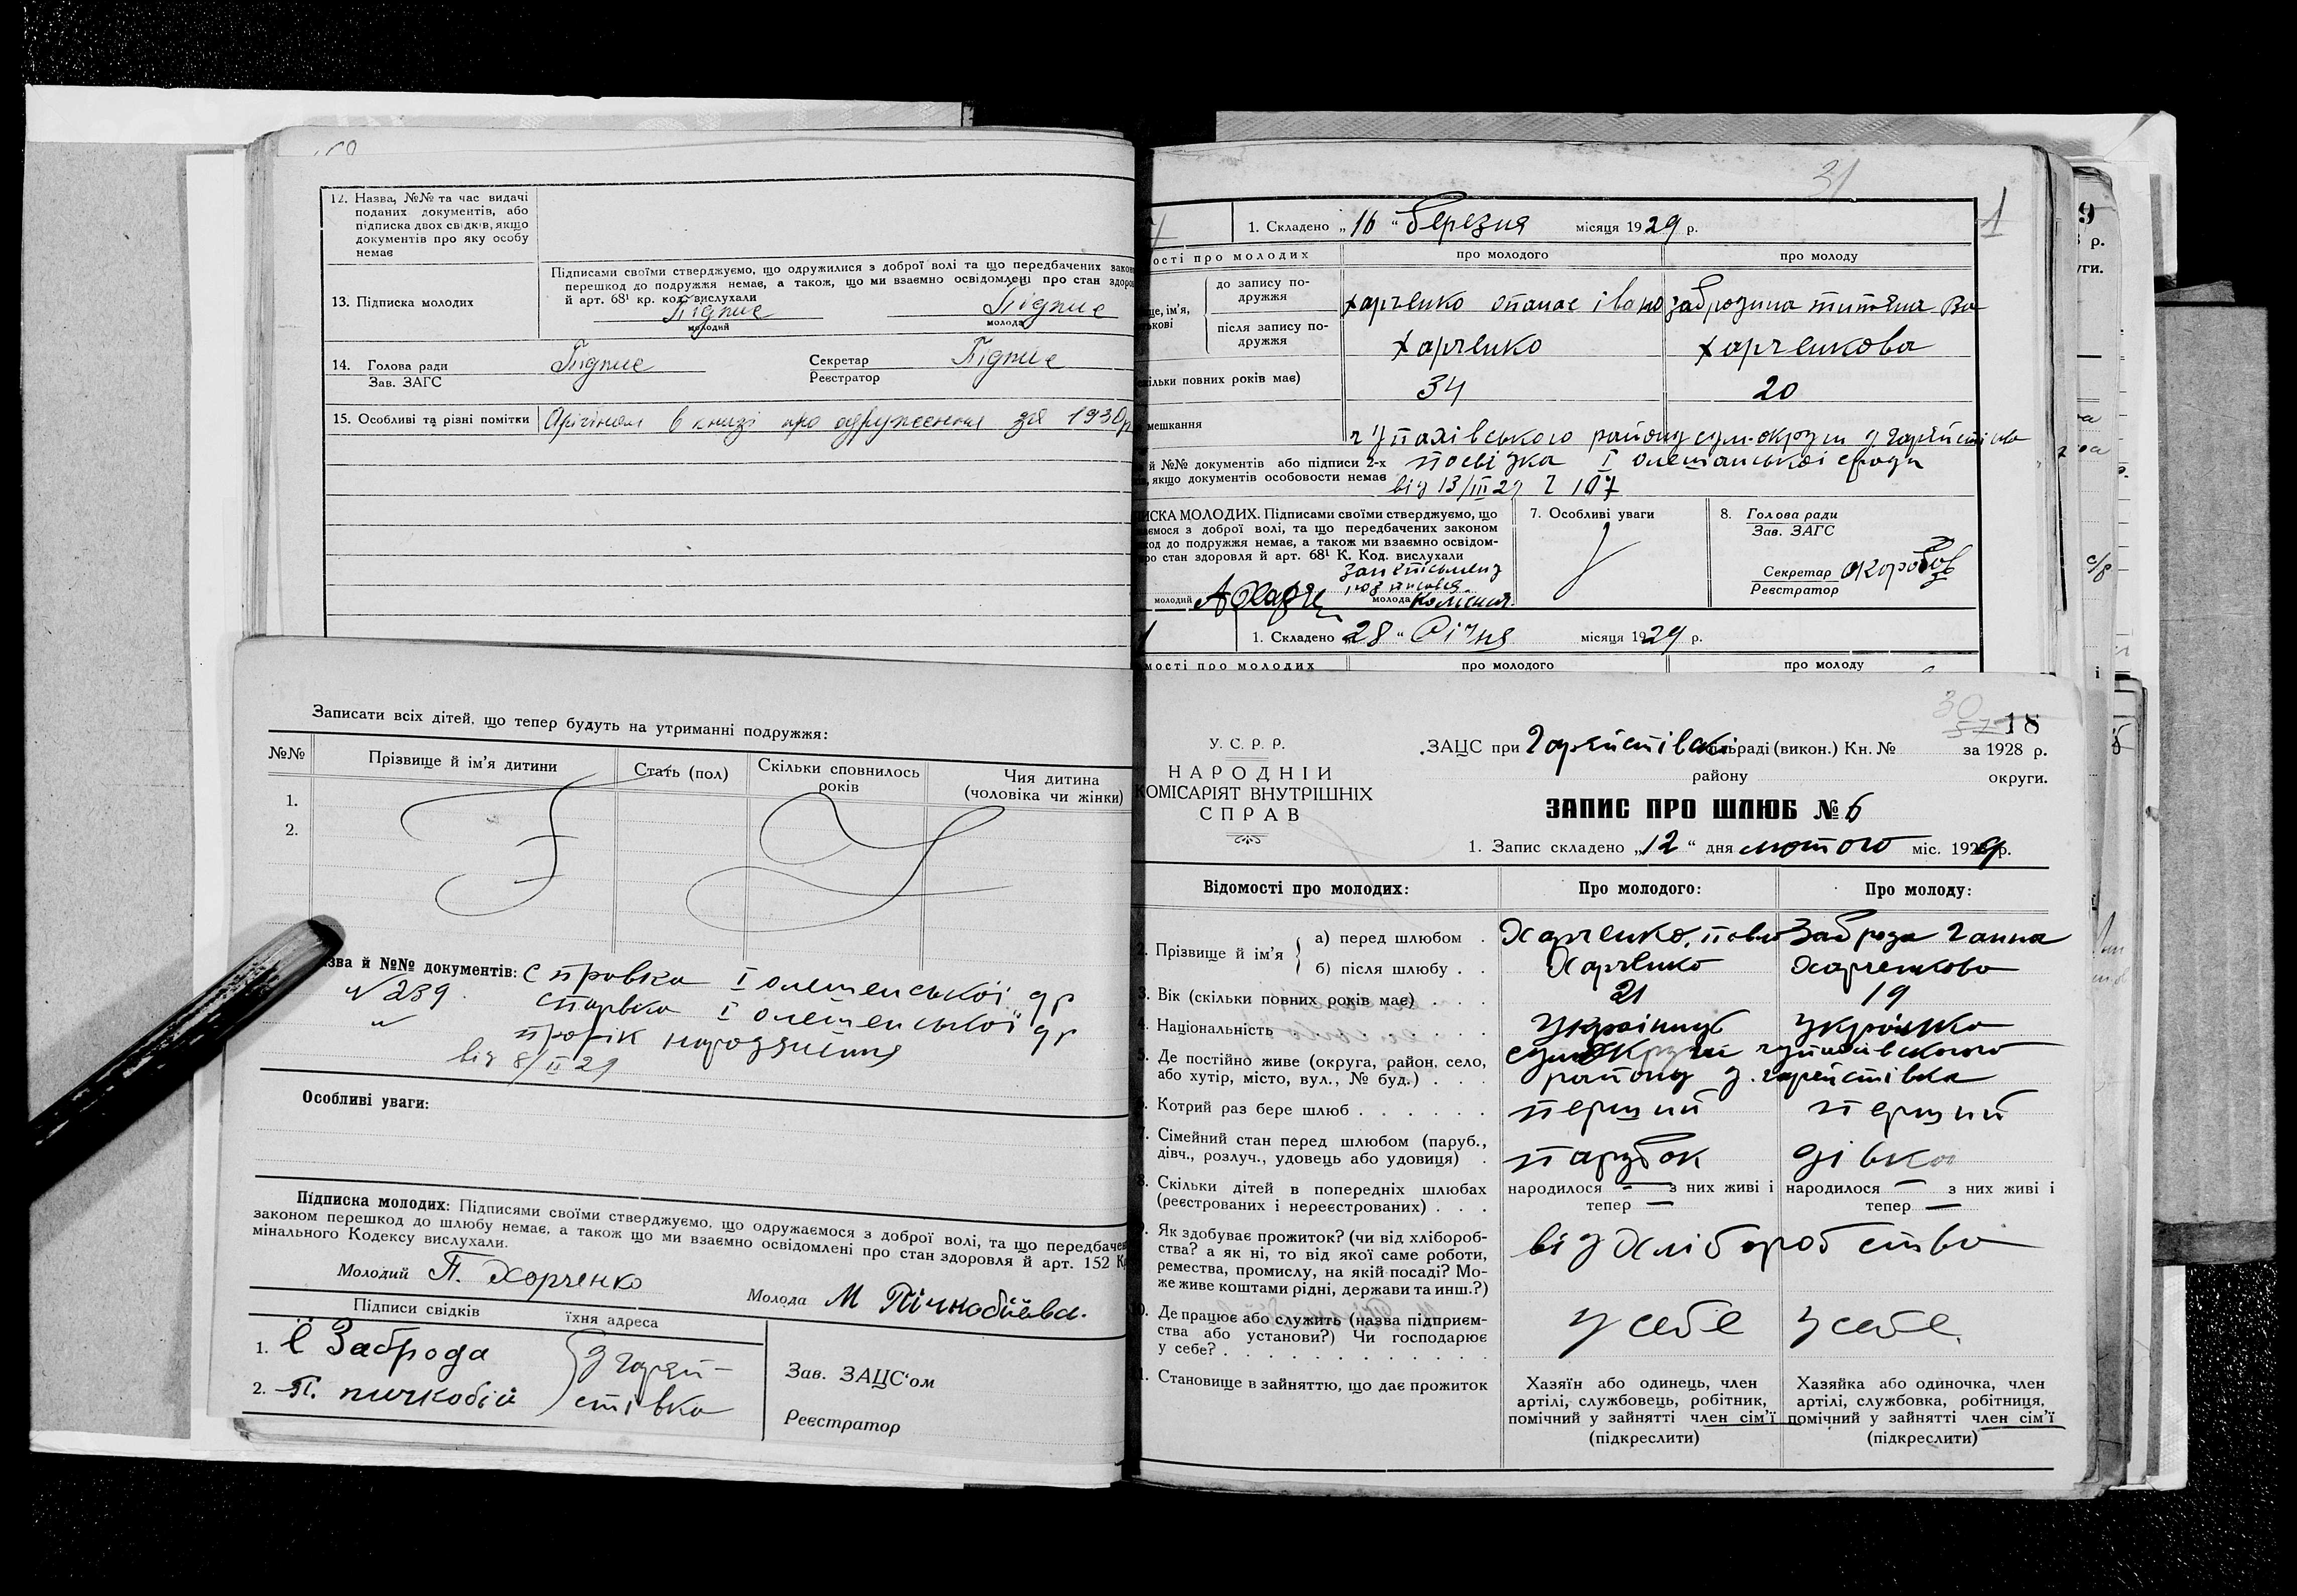 12. Назва, №№ та час видачі
поданих документів, або
підписка двох свідків, якщо
документів про яку особу
немає
13. Підписка молодих
Підписами своїми стверджуємо, що одружилися з доброї волі та що передбачених закон
перешкод до подружжя немає, а також, що ми взаємно освідомлені про стан здоров
й арт. 68¹ кр. код. вислухали
Підпис Підпис
молодий молода
14. Голова ради Підпис Секретар Підпис
Зав. ЗАГС Реєстратор
15. Особливі та різні помітки Орігінал в книзі про одруження за 1930р
Записати всіх дітей, що тепер будуть на утриманні подружжя:
№№ Прізвище й ім'я дитини Стать (пол) Скільки сповнилось років Чия дитина (чоловіка чи жінки)
1.
2.
зва й №№ документів: Справка І олешенської
N 239. І олешенської
про рік народження
від 8/II 29
Особливі уваги:
Підписка молодих: Підписями своїми стверджуємо, що одружаємося з доброї волі, та що передбаче
законом перешкод до шлюбу немає, а також що ми взаємно освідомлені про стан здоров'я й арт. 152 К
мінального Кодексу вислухали.
Молодий П. Харченко Молода М Пічкобіева.
Підписи свідків їхня адреса
1. Є Заброда д гаряй-
2. П. пичкобій стівка
Зав. ЗАЦС'ом
Реєстратор
31
1
1. Складено „16“ березня місяця 1929 р.
ості про молодих про молодого про молоду
ще, ім'я,
ькові
до запису по-
дружжя
Харченко опанас івано забродина титяна Ва
після запису по-
дружжя
Харченко Харченкова
скільки повних років має) 34 20
мешкання
г упахівського району сум-округи
й №№ документів або підписи 2-х посвідка І олешанської сради
ів, якщо документів особовости немає від 13/III 29 107
ПИСКА МОЛОДИХ. Підписами своїми стверджуємо, що
аємося з доброї волі, та що передбачених законом
код до подружжя немає, а також ми взаємно освідом-
про стан здоровля й арт. 68¹ К. Код. вислухали
молодий АХарч молода
7. Особливі уваги
8. Голова ради
Зав. ЗАГС
Секретар
Реєстратор
1. Складено „28“ Січня місяця 1929 р.
мості про молодих про молодого про молоду
30
18
У. С. Р. Р.
НАРОДНІЙ
КОМІСАРІЯТ ВНУТРІШНІХ
СПРАВ
ЗАЦС при сільраді (викон.) Кн. № за 1928 р.
району округи.
ЗАПИС ПРО ШЛЮБ № 6
1. Запис складено „12“ дня лютого міс. 1929 р.
Відомості про молодих: Про молодого: Про молоду:
2. Прізвище й ім'я
а) перед шлюбом Харченко, павло Заброда Ганна
б) після шлюбу Харченко Харченкова
3. Вік (скільки повних років має) 21 19
4. Національність Українець українка
5. Де постійно живе (округа, район, село,
або хутір, місто, вул., № буд.)
району д. гарейстівка
6. Котрий раз бере шлюб перший перший
7. Сімейний стан перед шлюбом (паруб.,
дівч., розлуч., удовець або удовиця) парубок дівка
8. Скільки дітей в попередніх шлюбах
(реєстрованих і нереєстрованих)
народилося — з них живі і тепер —
народилося — з них живі і тепер —
9. Як здобуває прожиток? (чи від хлібороб-
ства? а як ні, то від якої саме роботи,
ремества, промислу, на якій посаді? Мо-
же живе коштами рідні, держави та инш.?)
від Хліборобства
10. Де працює або служить (назва підприєм-
ства або установи?) Чи господарює
у себе?
у себе у себе.
11. Становище в зайняттю, що дає прожиток
Хазяїн або одинець, член
артілі, службовець, робітник,
помічний у зайнятті член сім'ї
(підкреслити)
Хазяйка або одиночка, член
артілі, службовка, робітниця,
помічний у зайнятті член сім'ї
(підкреслити)